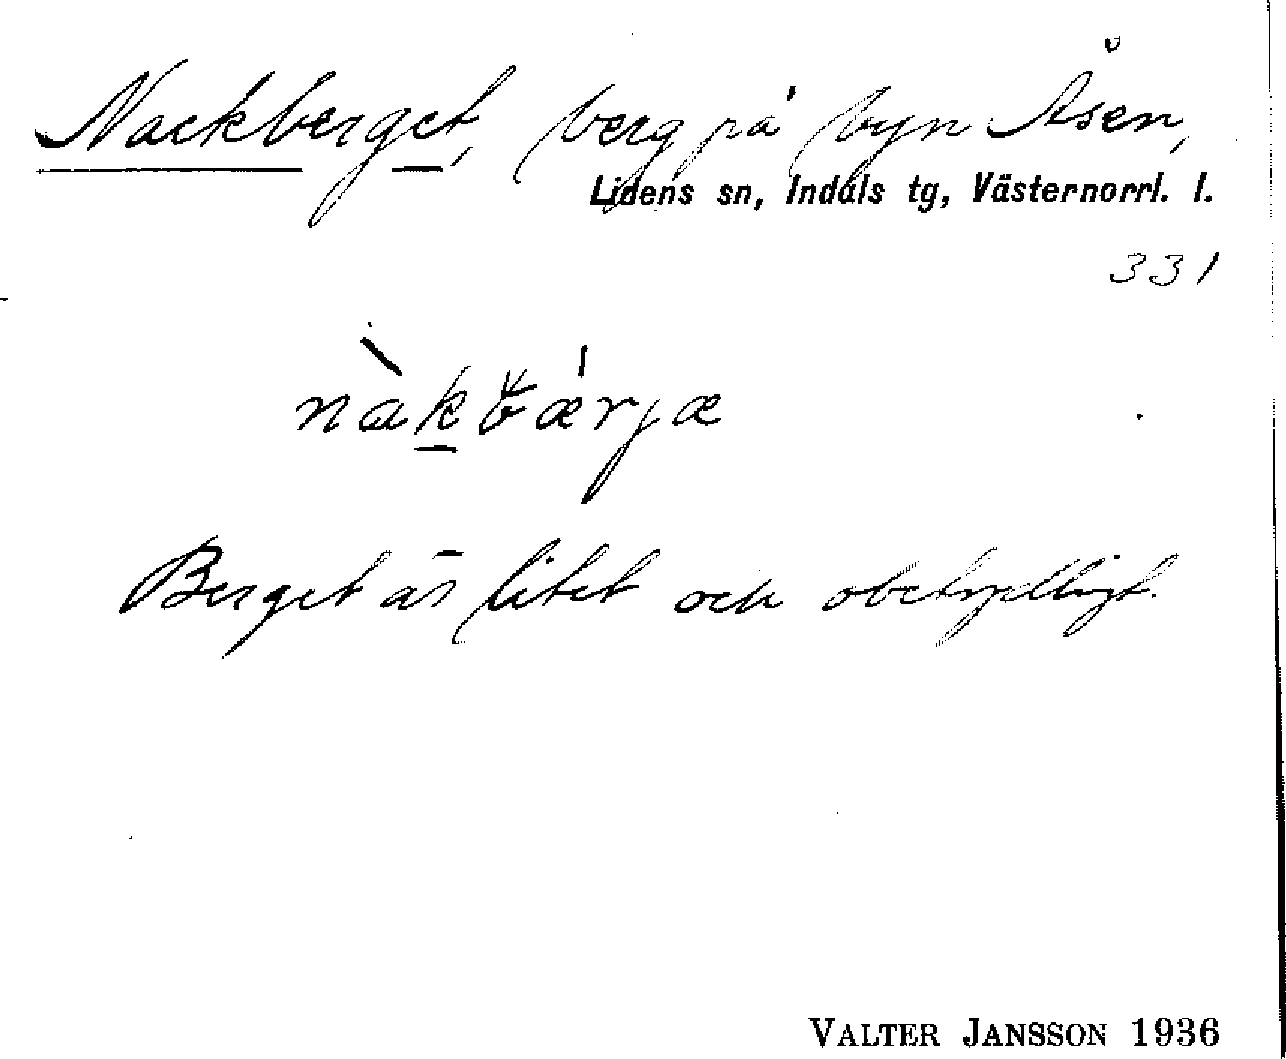 Nackberget, berg på byn Åsen,
Lidens sn, Indals tg, Västernorrl. l.
331
nàkbǽrjæ
Berget är litet och obetydligt.
VALTER JANSSON 1936